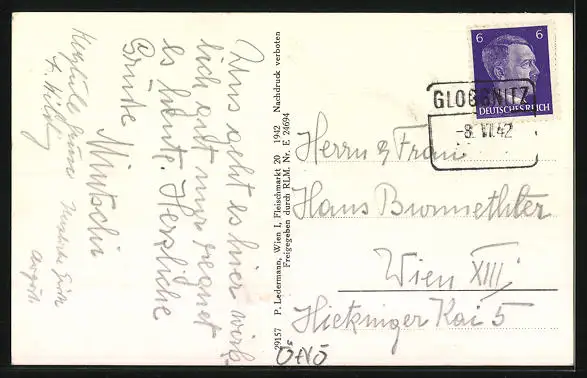 Uns geht es hier wirk-
lich gut nur regnet
es heute. Herzliche
Grüße Mutschi
Herzliche Grüße
29157 P. Ledermann, Wien I, Fleischmarkt 20 1942 Nachdruck verboten
Freigegeben durch RLM. Nr. E 24694
6 6
DEUTSCHES REICH
GLOGGNITZ
-8. VI. 42
Herrn & Frau
Hans
Wien XIII/
Hietzinger Kai 5
ÖNÖ